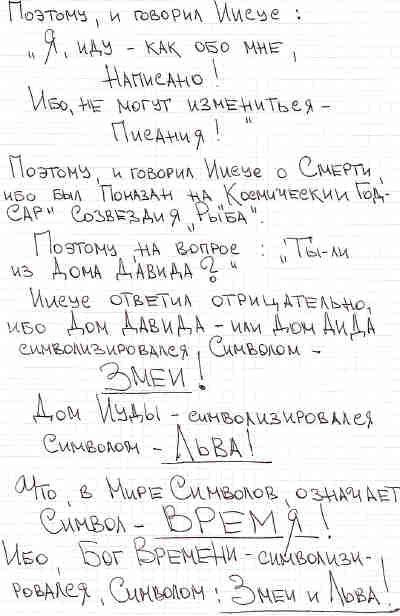 Поэтому, и говорил Иисус :
„Я, иду – как обо мне,
Написано !
Ибо, не могут измениться –
Писания ! "
Поэтому, и говорил Иисус о Смерти,
ибо был Показан на „Космический Год-
САР" Созвездия „Рыба".
Поэтому, на вопрос : „Ты-ли
из Дома Давида ? "
Иисус ответил отрицательно,
ибо Дом Давида – или Дом АиДА
символизировался Символом –
Змеи !
Дом Иуды – символизировался
Символом – Льва !
А это, в Мире Символов, означает
Символ – ВРЕМЯ !
Ибо, Бог Времени – символизи-
ровался, Символом : Змеи и Льва !